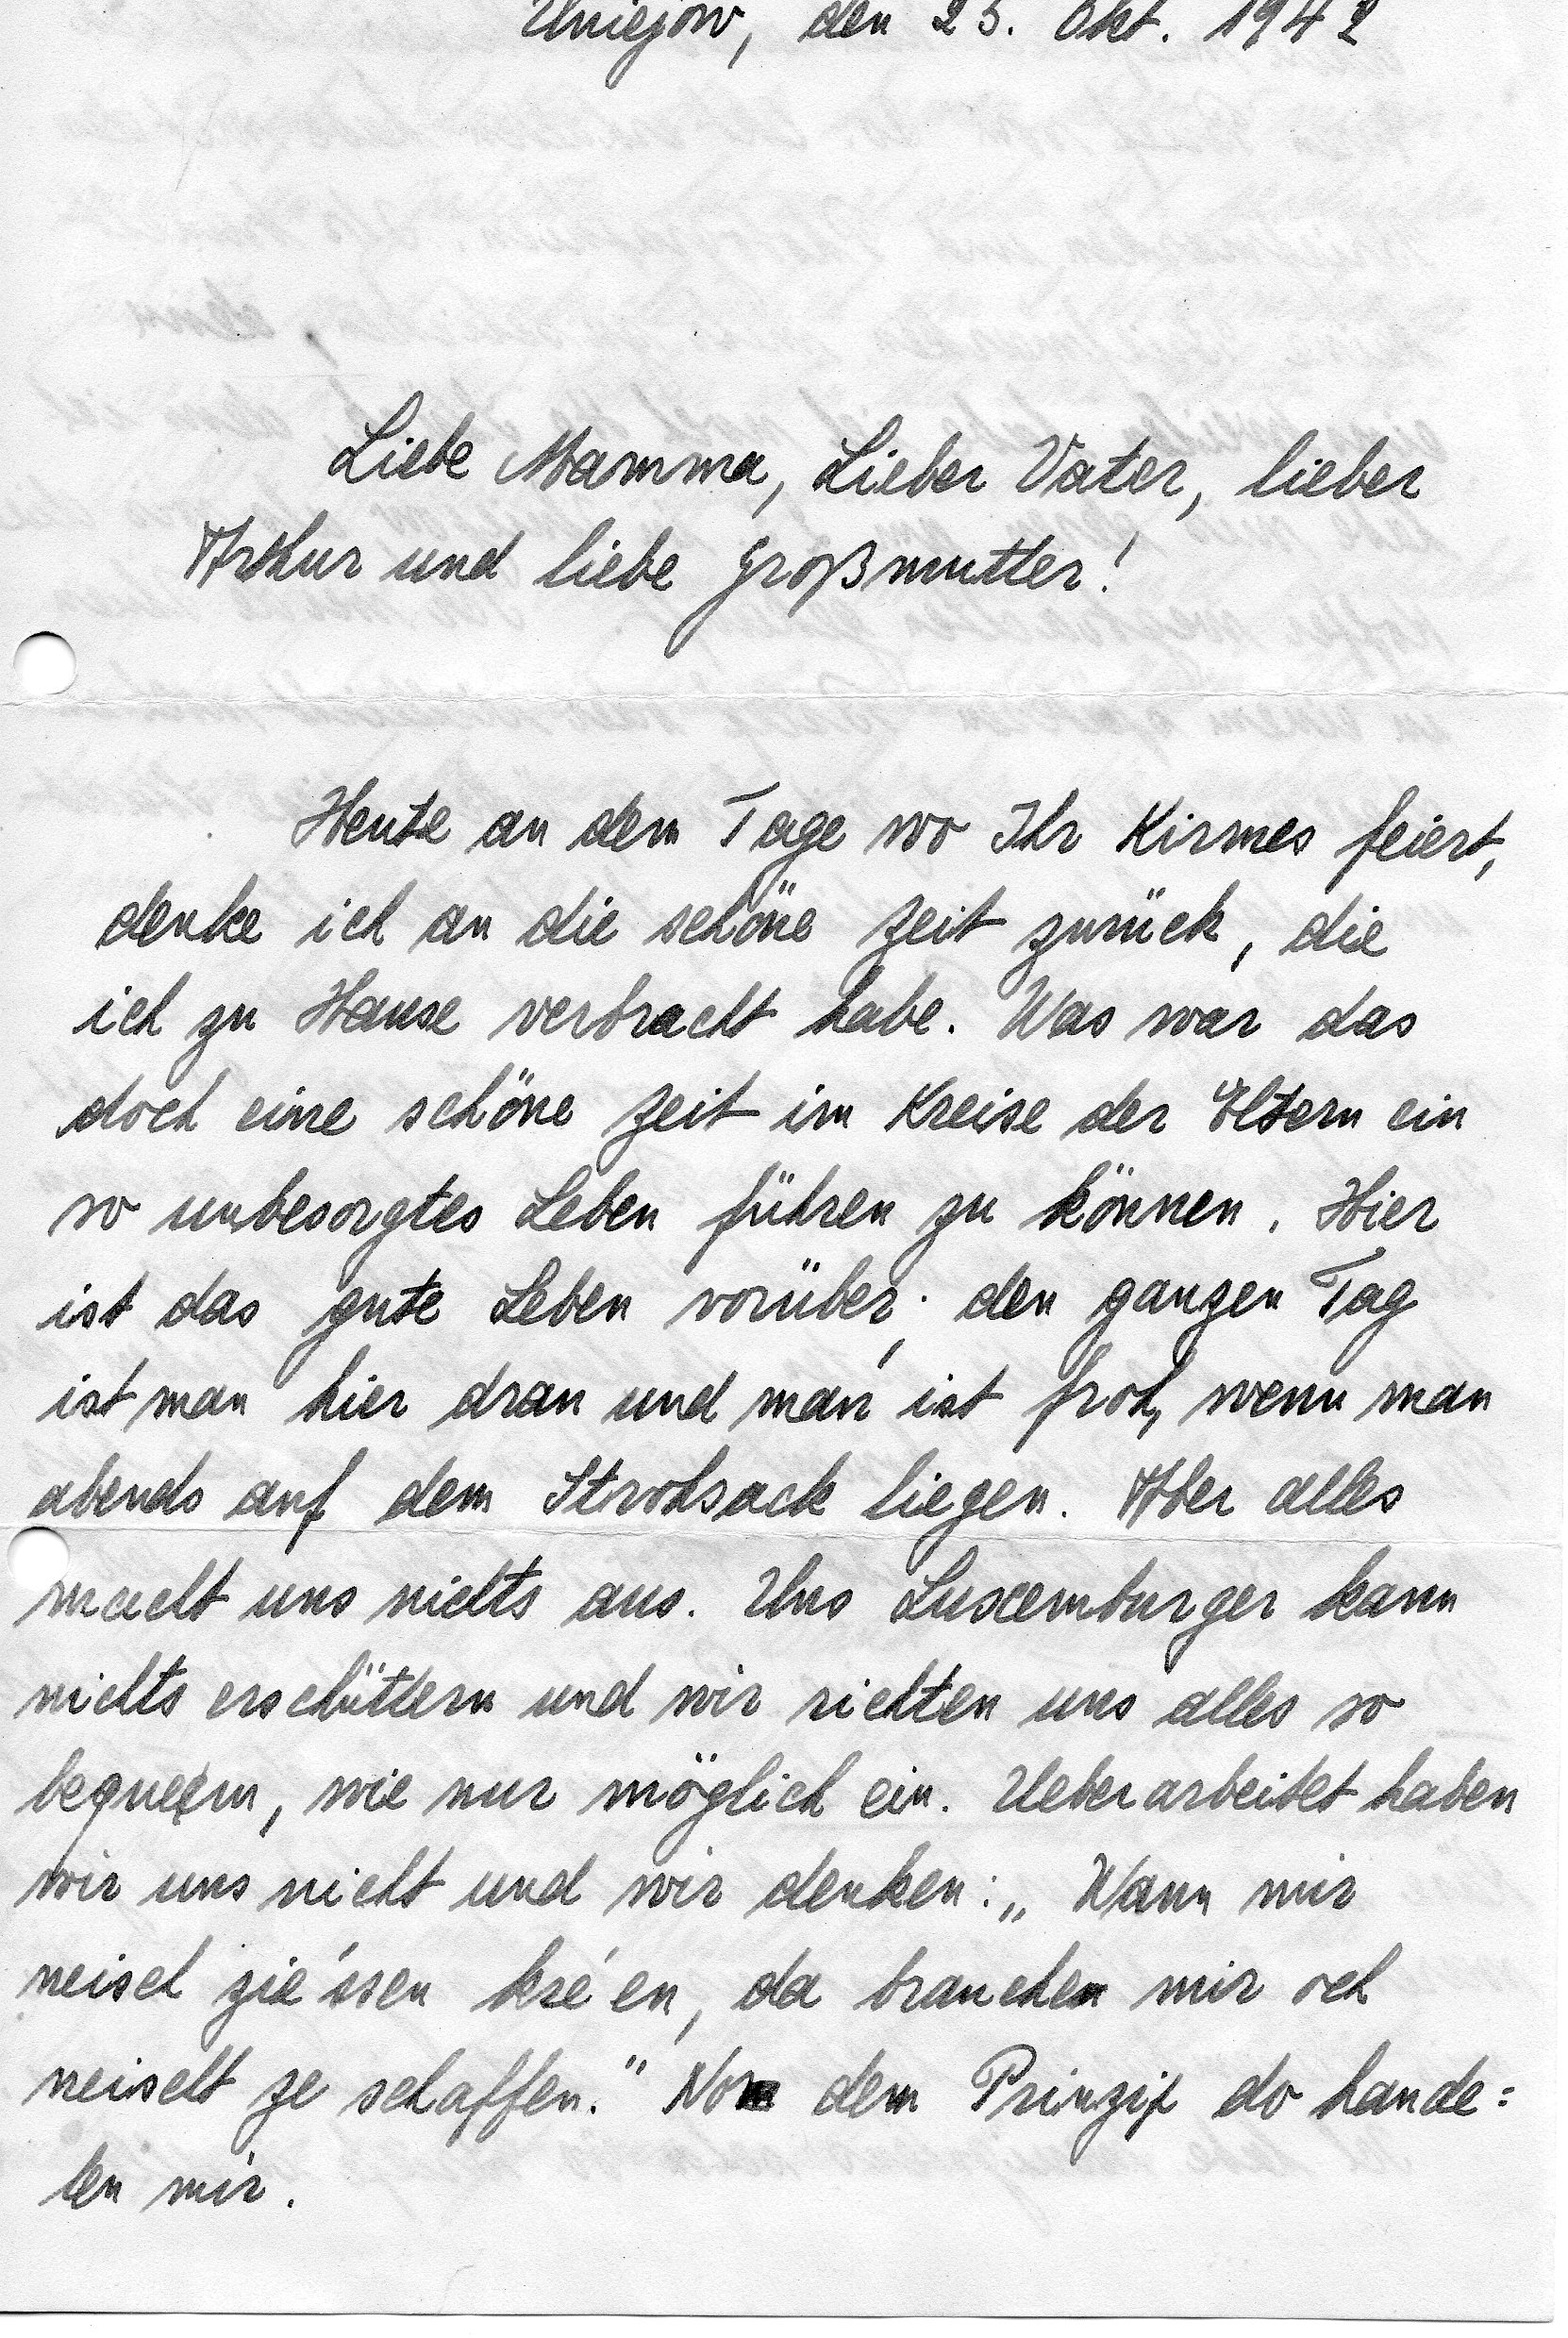 Uniejow, den 25. Okt. 1942
Liebe Mamma, Lieber Vater, lieber
Arthur und liebe Großmutter!
Heute an dem Tage wo Ihr Kirmes feiert,
denke ich an die schöne Zeit zurück, die
ich zu Hause verbracht habe. Was war das
doch eine schöne Zeit im Kreise der Eltern ein
so unbesorgtes Leben führen zu können. Hier
ist das gute Leben vorüber; den ganzen Tag
ist man hier dran und man ist froh, wenn man
abends auf dem Strohsack liegen. Aber alles
macht uns nichts aus. Uns Luxemburger kann
nichts erschüttern und wir richten uns alles so
bequem, wie nur möglich ein. Ueberarbeitet haben
wir uns nicht und wir denken: „Wann mir
neisch zie'ssen kre'en, da brauchen mir och
neischt ze schaffen." No dem Prinzip do hande=
len mir.